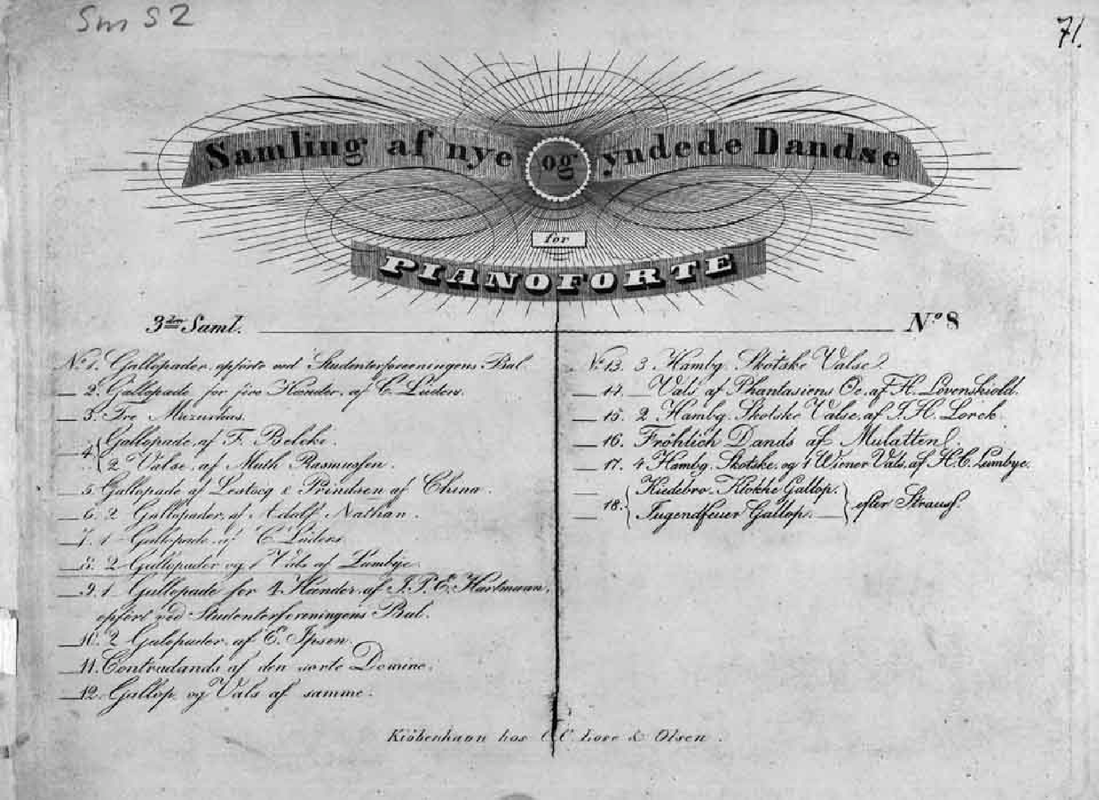 Sm S 2
71.
Samling af nye og yndede Dandse
for
PIANOFORTE
3die Saml.
No 8
No 1. Gallopader, opförte ved Studenterforeningens Bal
2. Gallopade for fire Hænder, af C. Lüders.
3. Tre Mazurkas.
4. { Gallopade af F. Belcke.
2 Valse, af Muth Rasmussen.
5. Gallopade af Lestocq & Prindsen af China.
6. 2 Gallopader, af Adolf Nathan.
7. 1 Gallopade, af C. Lüders
8. 2 Gallopader og 1 Vals af Lumbye.
9. 1 Gallopade for 4 Hænder, af J. P. E. Hartmann,
opfört ved Studenterforeningens Bal.
10. 2 Galopader, af E. Ipsen.
11. Contradands af den sorte Domino.
12. Gallop og Vals af samme.
No 13. 3 Hambg. Skotske Valse.
14. Vals af Phantasiens Öe, af H. Lövenskiold.
15. 2 Hambg. Skotske Valse, af J. H. Lorck.
16. Fröhlich Dands af Mulatten.
17. 4 Hambg. Skotske og 1 Wiener Vals, af H. C. Lumbye.
18. { Kiedebro-Klokke Gallop.
Jugendfeuer Gallop. } efter Strauss.
Kiöbenhavn hos C.C. Lose & Olsen.